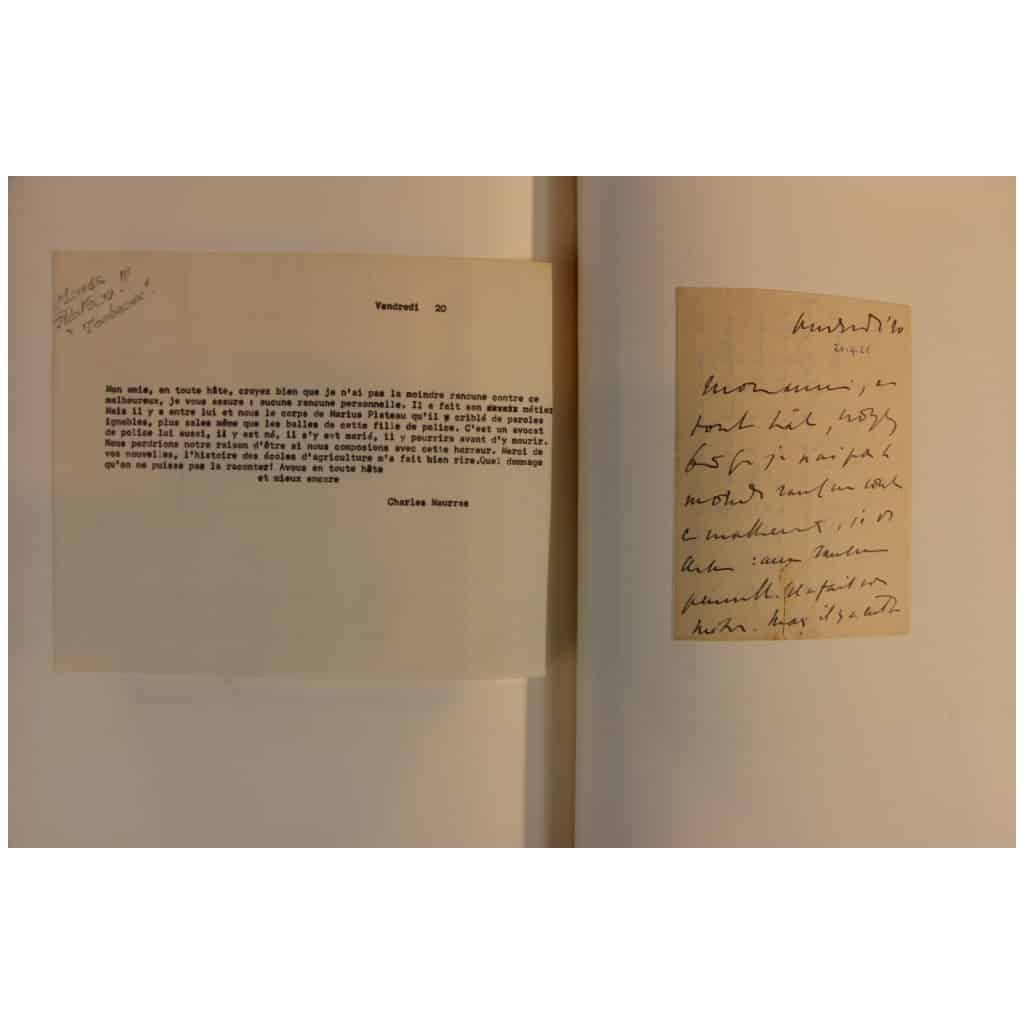 Vendredi 20
Mon amie, en toute hâte, croyez bien que je n'ai pas la moindre rancune contre ce
malheureux, je vous assure : aucune rancune personnelle. Il a fait son métier
Mais il y a entre lui et nous le corps de Marius Plateau qu'il a criblé de paroles
ignobles, plus sales même que les balles de cette fille de police. C'est un avocat
de police lui aussi, il y est né, il s'y est marié, il y pourrira avant d'y mourir.
Nous perdrions notre raison d'être si nous composions avec cette horreur. Merci de
vos nouvelles, l'histoire des écoles d'agriculture m'a fait bien rire.Quel dommage
qu'on ne puisse pas la raconter! Avous en toute hâte
et mieux encore
Charles Maurras
Vendredi 20
Mon amie, en
toute hâte, croyez
bien que je n'ai pas la
moindre rancune contre
ce malheureux, je vs
assure : aucune rancune
personnelle. Il a fait son
métier. Mais il y a entre